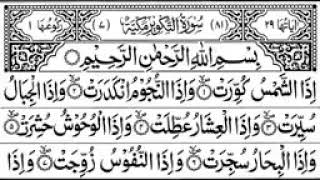 اٰيَاتُهَا ٢٩ (٨١) سُوْرَةُ التَّكْوِيْرِ مَكِّيَّةٌ (٧) رُكُوْعُهَا ١
بِسْمِ اللّٰهِ الرَّحْمٰنِ الرَّحِيْمِ
اِذَا الشَّمْسُ كُوِّرَتْ ۝١ وَاِذَا النُّجُوْمُ انْكَدَرَتْ ۝٢ وَاِذَا الْجِبَالُ
سُيِّرَتْ ۝٣ وَاِذَا الْعِشَارُ عُطِّلَتْ ۝٤ وَاِذَا الْوُحُوْشُ حُشِرَتْ ۝٥
وَاِذَا الْبِحَارُ سُجِّرَتْ ۝٦ وَاِذَا النُّفُوْسُ زُوِّجَتْ ۝٧ وَاِذَا